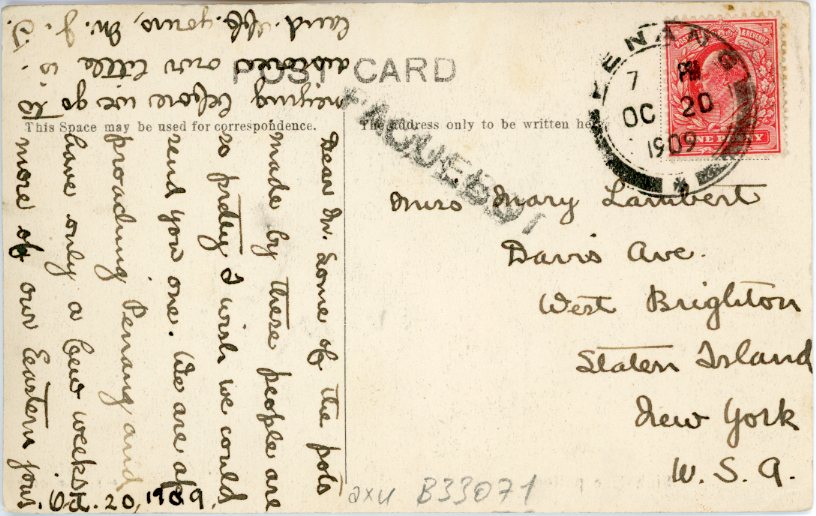 POST CARD
This Space may be used for correspondence.
The address only to be written he
PAQUEBOT
PENANG
7 PM
OC 20
1909
ONE PENNY
Miss Mary Lambert
Davis Ave.
West Brighton
Staten Island
New York
U. S. A.
Dear M. Some of the pots
made by these people are
so pretty I wish we could
send you one. We are ap
proaching Penang and
have only a few weeks
more of our Eastern jour
neying before we go to
our little is.
land. Aff. yours, M. J. T.
Oct. 20, 1909.
axu B33071